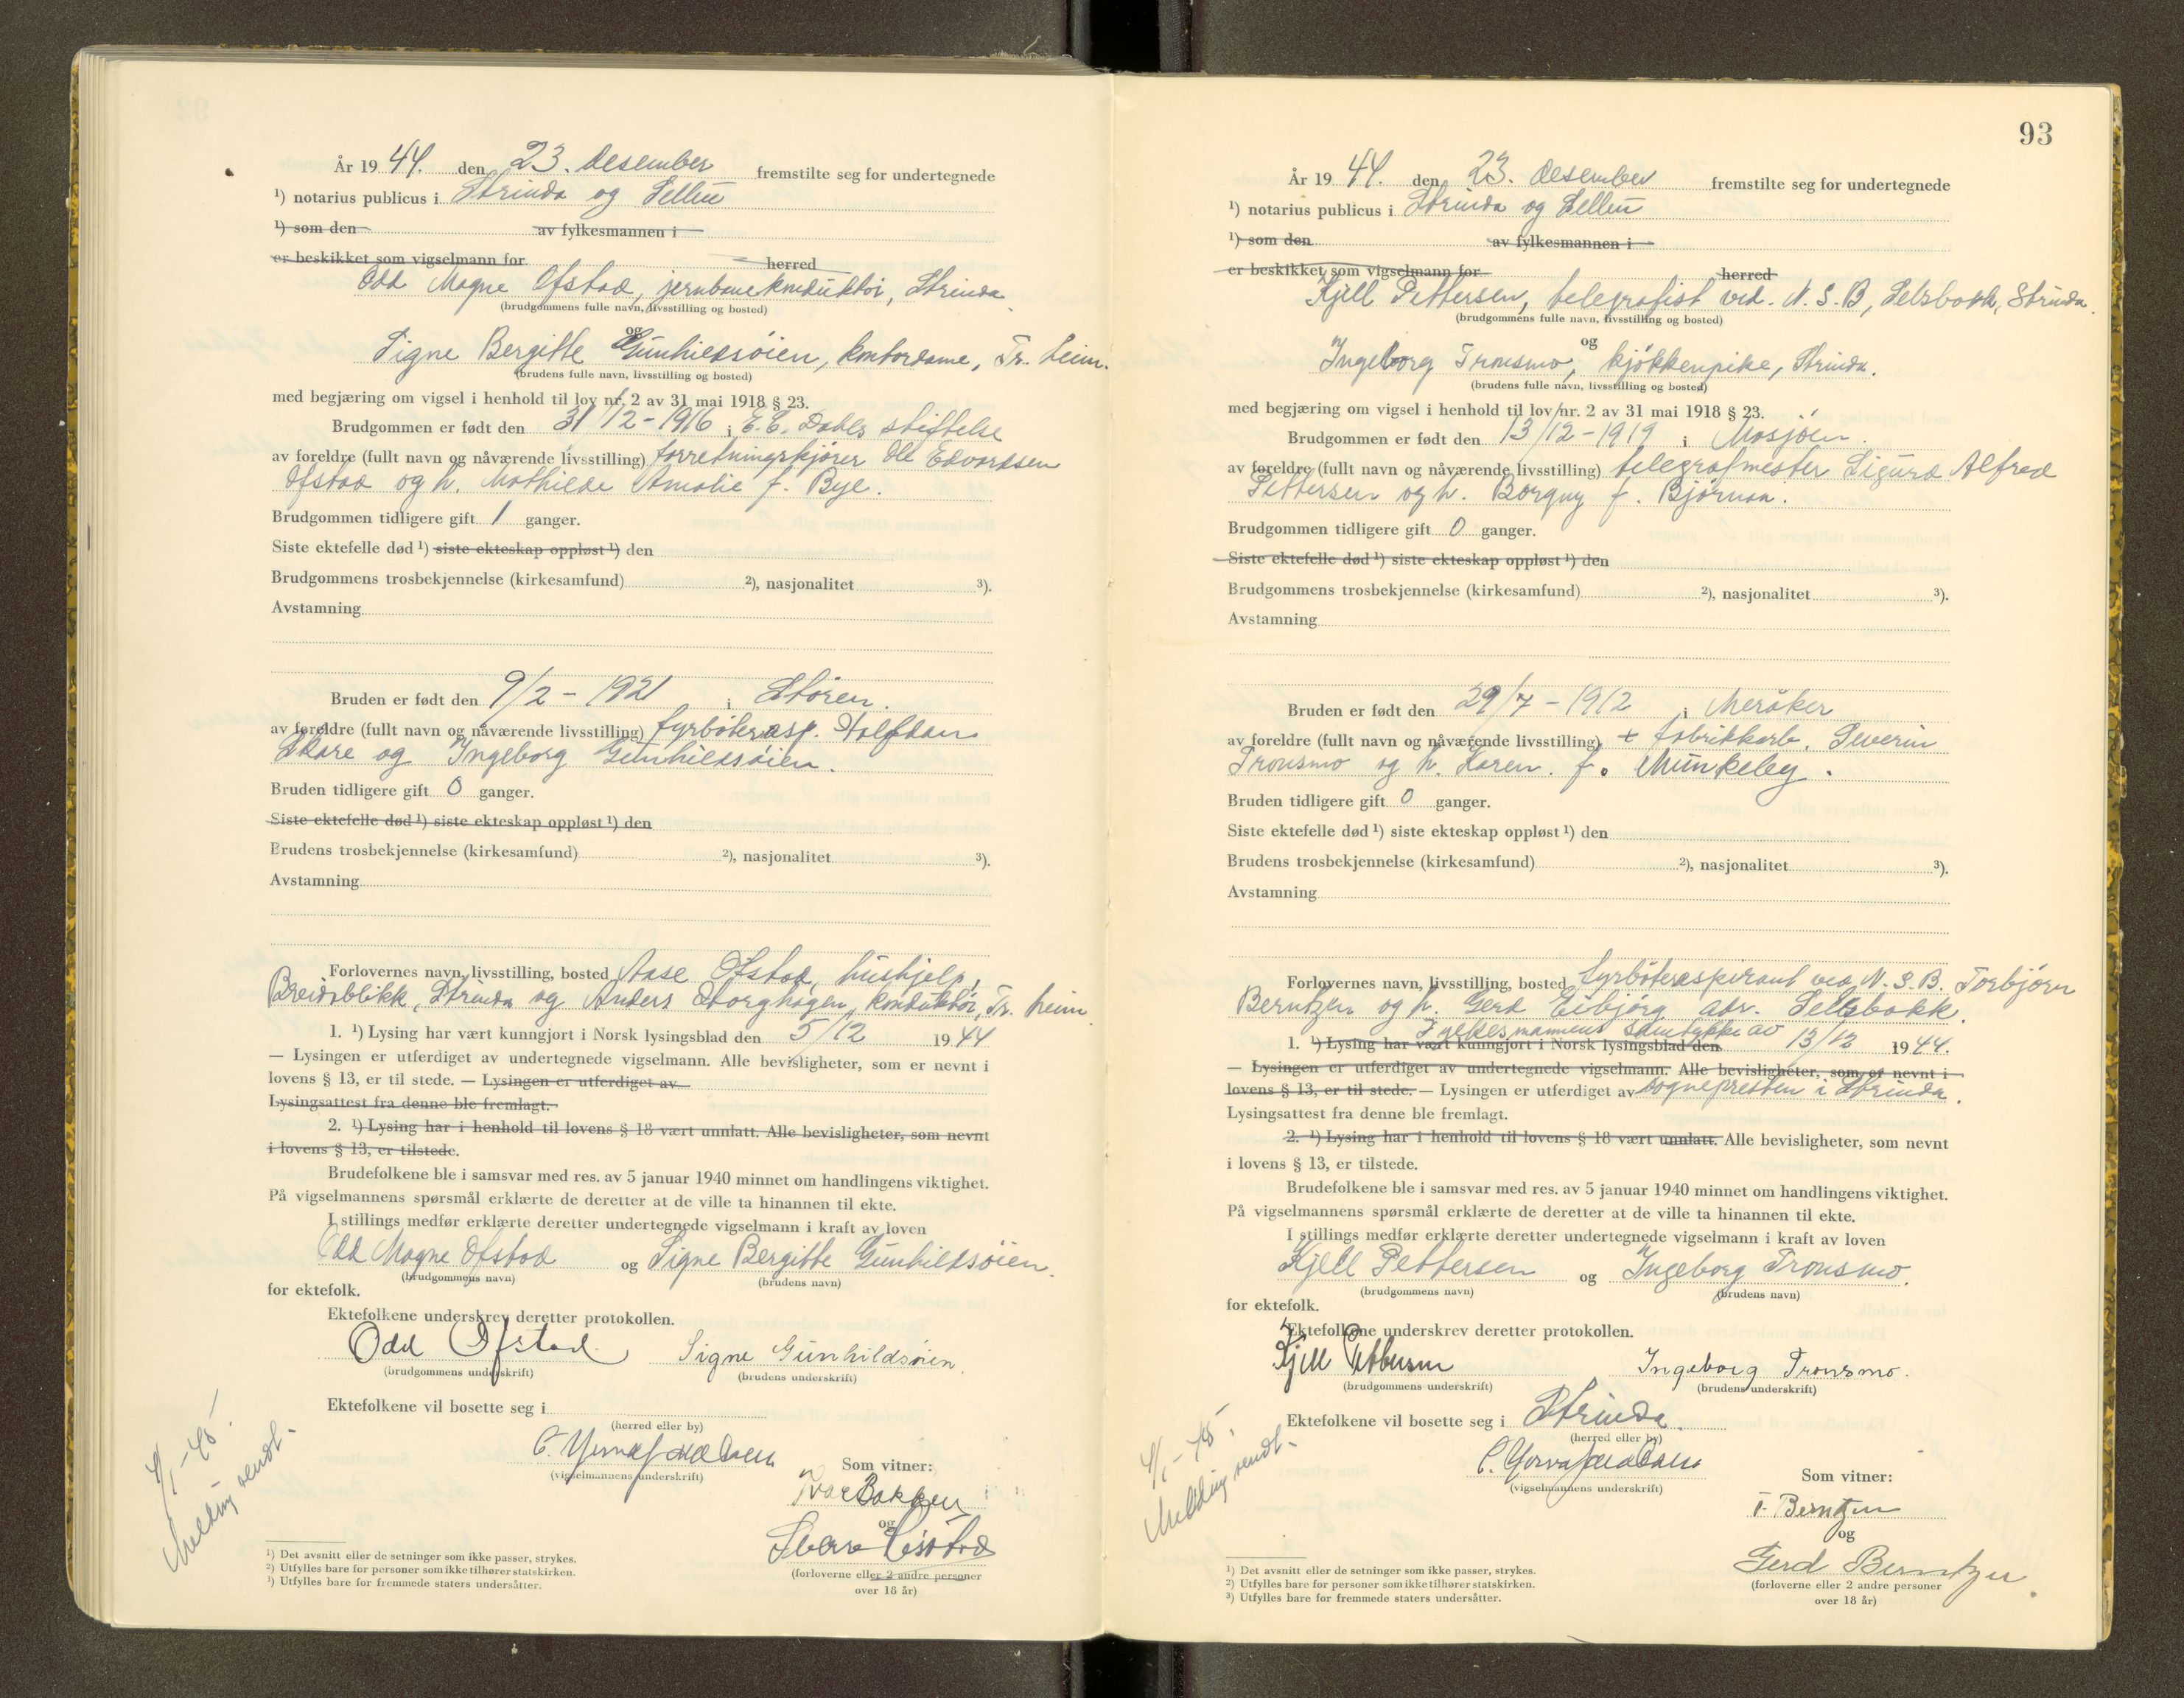 År 19 44. den 23. desember fremstilte seg for undertegnede
¹) notarius publicus i Strinda og Selbu
¹) som den av fylkesmannen i
er beskikket som vigselmann for herred
Odd Magne Ofstad, jernbanekonduktör, Strinda.
(brudgommens fulle navn, livsstilling og bosted)
og
Signe Bergitte Gunhildsöien, kontordame, Tr.heim.
(brudens fulle navn, livsstilling og bosted)
med begjæring om vigsel i henhold til lov nr. 2 av 31 mai 1918 § 23.
Brudgommen er født den 31/12-1916 i E.C. Dahls stiftelse
av foreldre (fullt navn og nåværende livsstilling) forretningskjører Ole Edvardsen
Ofstad og h. Mathilde Amalie f. Bye.
Brudgommen tidligere gift 1 ganger.
Siste ektefelle død ¹) siste ekteskap oppløst ¹) den
Brudgommens trosbekjennelse (kirkesamfund) ²), nasjonalitet ³).
Avstamning
Bruden er født den 9/2-1921 i Stören.
av foreldre (fullt navn og nåværende livsstilling) fyrböterasp. Halfdan
Skare og Ingeborg Gunhildsöien.
Bruden tidligere gift 0 ganger.
Siste ektefelle død ¹) siste ekteskap oppløst ¹) den
Brudens trosbekjennelse (kirkesamfund) ²), nasjonalitet ³).
Avstamning
Forlovernes navn, livsstilling, bosted Aase Ofstad, hushjelp,
Breidablikk, Strinda og Anders Storghagen, konduktör, Tr.heim.
1. ¹) Lysing har vært kunngjort i Norsk lysingsblad den 5/12 19 44
— Lysingen er utferdiget av undertegnede vigselmann. Alle bevisligheter, som er nevnt i
lovens § 13, er til stede. — Lysingen er utferdiget av
Lysingsattest fra denne ble fremlagt.
2. ¹) Lysing har i henhold til lovens § 18 vært unnlatt. Alle bevisligheter, som nevnt
i lovens § 13, er tilstede.
Brudefolkene ble i samsvar med res. av 5 januar 1940 minnet om handlingens viktighet.
På vigselmannens spørsmål erklærte de deretter at de ville ta hinannen til ekte.
I stillings medfør erklærte deretter undertegnede vigselmann i kraft av loven
Odd Magne Ofstad og Signe Bergitte Gunhildsöien.
(brudgommens navn) (brudens navn)
for ektefolk.
Ektefolkene underskrev deretter protokollen.
Odd Ofstad Signe Gunhildsöien.
(brudgommens underskrift) (brudens underskrift)
Ektefolkene vil bosette seg i
(herred eller by)
(vigselmannens underskrift)
Som vitner:
Ivar Bakken
og
Sverre
(forloverne eller 2 andre personer
over 18 år)
4/1-45.
Melding sendt.
¹) Det avsnitt eller de setninger som ikke passer, strykes.
²) Utfylles bare for personer som ikke tilhører statskirken.
³) Utfylles bare for fremmede staters undersåtter.
93
År 19 44. den 23. desember fremstilte seg for undertegnede
¹) notarius publicus i Strinda og Selbu
¹) som den av fylkesmannen i
er beskikket som vigselmann for herred
Kjell Pettersen, telegrafist ved. N.S.B, Selsbakk, Strinda.
(brudgommens fulle navn, livsstilling og bosted)
og
Ingeborg Tronsmo, kjökkenpike, Strinda.
(brudens fulle navn, livsstilling og bosted)
med begjæring om vigsel i henhold til lov nr. 2 av 31 mai 1918 § 23.
Brudgommen er født den 13/12-1919 i Mosjöen.
av foreldre (fullt navn og nåværende livsstilling) telegrafmester Sigurd Alfred
Pettersen og h. Borgny f. Björnaa.
Brudgommen tidligere gift 0 ganger.
Siste ektefelle død ¹) siste ekteskap oppløst ¹) den
Brudgommens trosbekjennelse (kirkesamfund) ²), nasjonalitet ³).
Avstamning
Bruden er født den 29/7-1912 i Meråker
av foreldre (fullt navn og nåværende livsstilling) + fabrikkarb. Severin
Tronsmo og h. Karen. f. Munkeby.
Bruden tidligere gift 0 ganger.
Siste ektefelle død ¹) siste ekteskap oppløst ¹) den
Brudens trosbekjennelse (kirkesamfund) ²), nasjonalitet ³).
Avstamning
Forlovernes navn, livsstilling, bosted fyrböteraspirant ved N.S.B. Torbjörn
Berntzen og h. Gerd Eibjörg adr. Selsbakk.
Fylkesmannens samtykke av
1. ¹) Lysing har vært kunngjort i Norsk lysingsblad den 13/12 19 44.
— Lysingen er utferdiget av undertegnede vigselmann. Alle bevisligheter, som er nevnt i
lovens § 13, er til stede. — Lysingen er utferdiget av sognepresten i Strinda.
Lysingsattest fra denne ble fremlagt.
2. ¹) Lysing har i henhold til lovens § 18 vært unnlatt. Alle bevisligheter, som nevnt
i lovens § 13, er tilstede.
Brudefolkene ble i samsvar med res. av 5 januar 1940 minnet om handlingens viktighet.
På vigselmannens spørsmål erklærte de deretter at de ville ta hinannen til ekte.
I stillings medfør erklærte deretter undertegnede vigselmann i kraft av loven
Kjell Pettersen og Ingeborg Tronsmo.
(brudgommens navn) (brudens navn)
for ektefolk.
Ektefolkene underskrev deretter protokollen.
Kjell Pettersen Ingeborg Tronsmo.
(brudgommens underskrift) (brudens underskrift)
Ektefolkene vil bosette seg i Strinda.
(herred eller by)
(vigselmannens underskrift)
Som vitner:
T. Berntzen
og
Gerd Berntzen
(forloverne eller 2 andre personer
over 18 år)
4/1-45.
Melding sendt.
¹) Det avsnitt eller de setninger som ikke passer, strykes.
²) Utfylles bare for personer som ikke tilhører statskirken.
³) Utfylles bare for fremmede staters undersåtter.